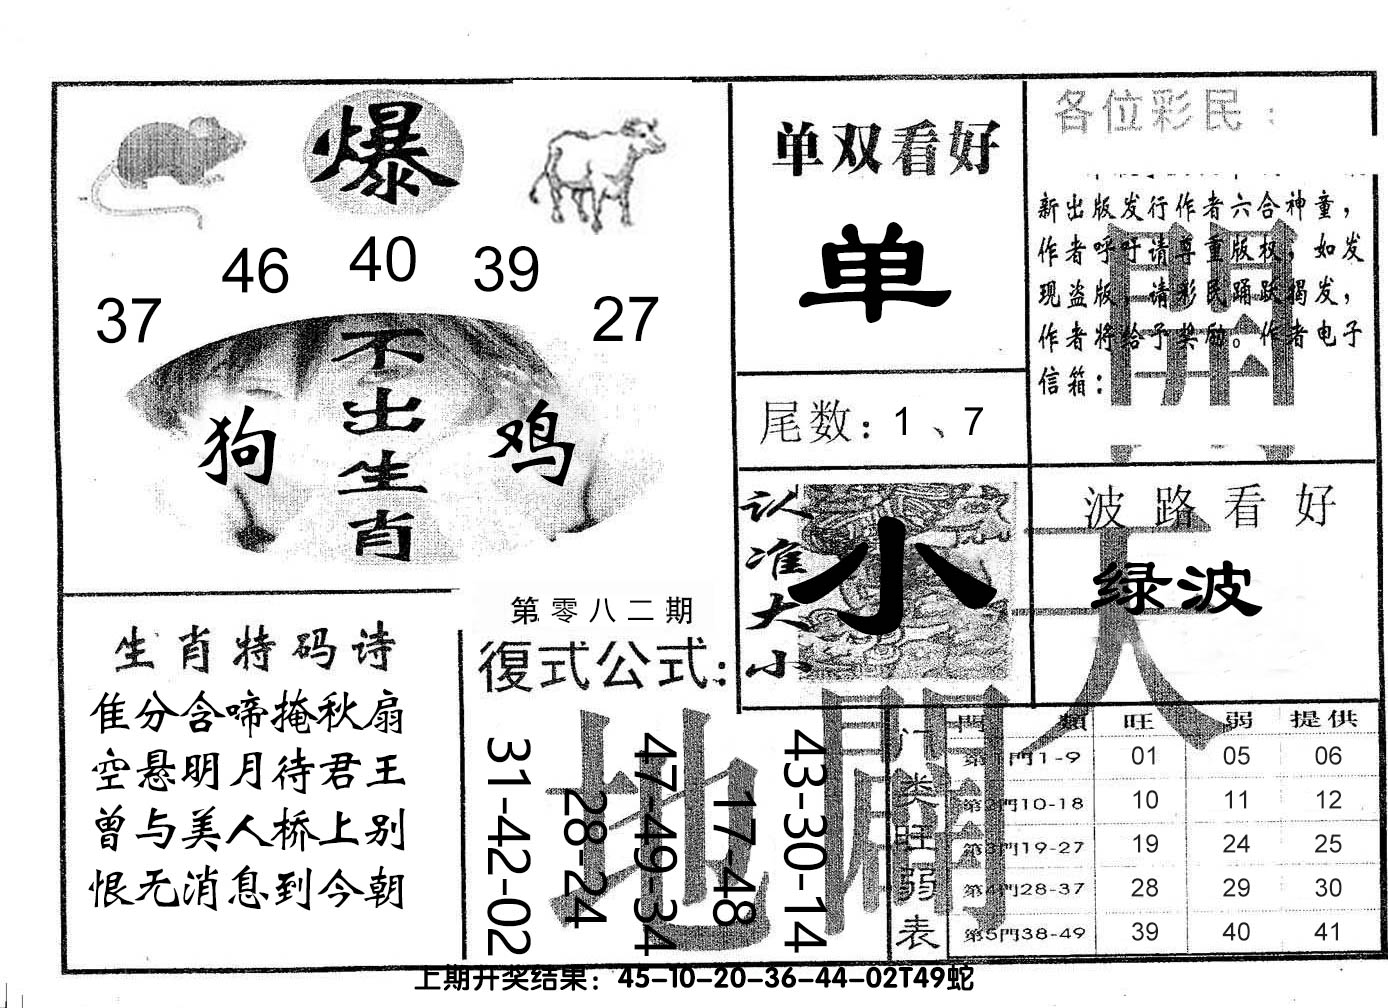 爆
37 46 40 39 27
不出生肖
狗 鸡
单双看好
单
尾数：1、7
各位彩民：
新出版发行作者六合神童，
作者呼吁请尊重版权，如发
现盗版，请彩民踊跃揭发，
作者将给予奖励。作者电子
信箱：
認准大小
小
波路看好
绿波
生肖特码诗
隹分含啼掩秋扇
空悬明月待君王
曾与美人桥上别
恨无消息到今朝
第零八二期
復式公式：
31-42-02
28-24
47-49-34
17-48
43-30-14
天地
门类旺弱表
門類 旺 弱 提供
第1門1-9 01 05 06
第2門10-18 10 11 12
第3門19-27 19 24 25
第4門28-37 28 29 30
第5門38-49 39 40 41
上期开奖结果：45-10-20-36-44-02T49蛇